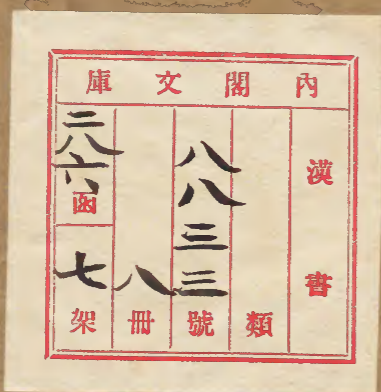 內閣文庫
漢書
類
八八三三號
八冊
二八六函
七架